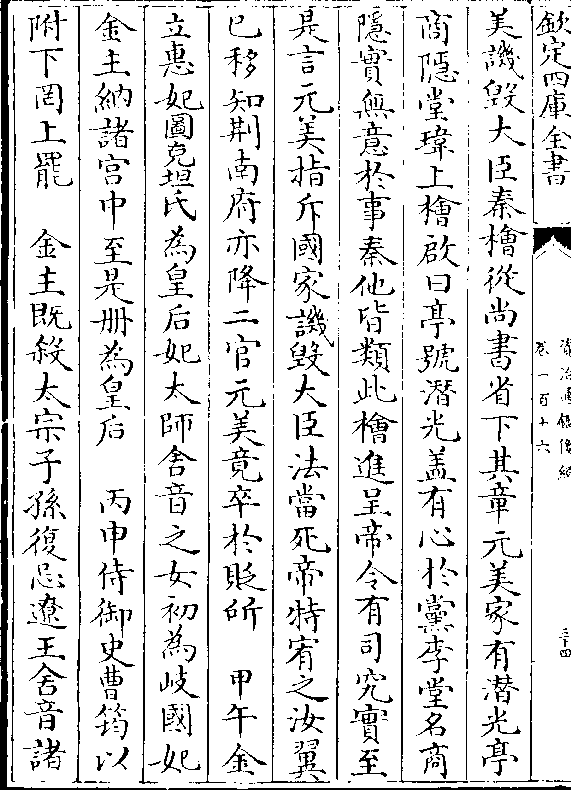 欽定四庫全書
資治通鑑後編
卷一百十六
三十四
美譏毀大臣秦檜從尚書省下其章元美家有潛光亭
商隱堂瑋上檜啟曰亭號潛光盖有心於黨李堂名商
隱實無意於事秦他皆類此檜進呈帝令有司究實至
是言元美指斥國家譏毀大臣法當死帝特宥之汝翼
已移知荆南府亦降二官元美竟卒於貶所　甲午金
立惠妃圖克坦氏為皇后妃太師舍音之女初為岐國妃
金主納諸宫中至是册為皇后　丙申侍御史曹筠以
附下罔上罷　金主既殺太宗子孫復忌遼王舍音諸